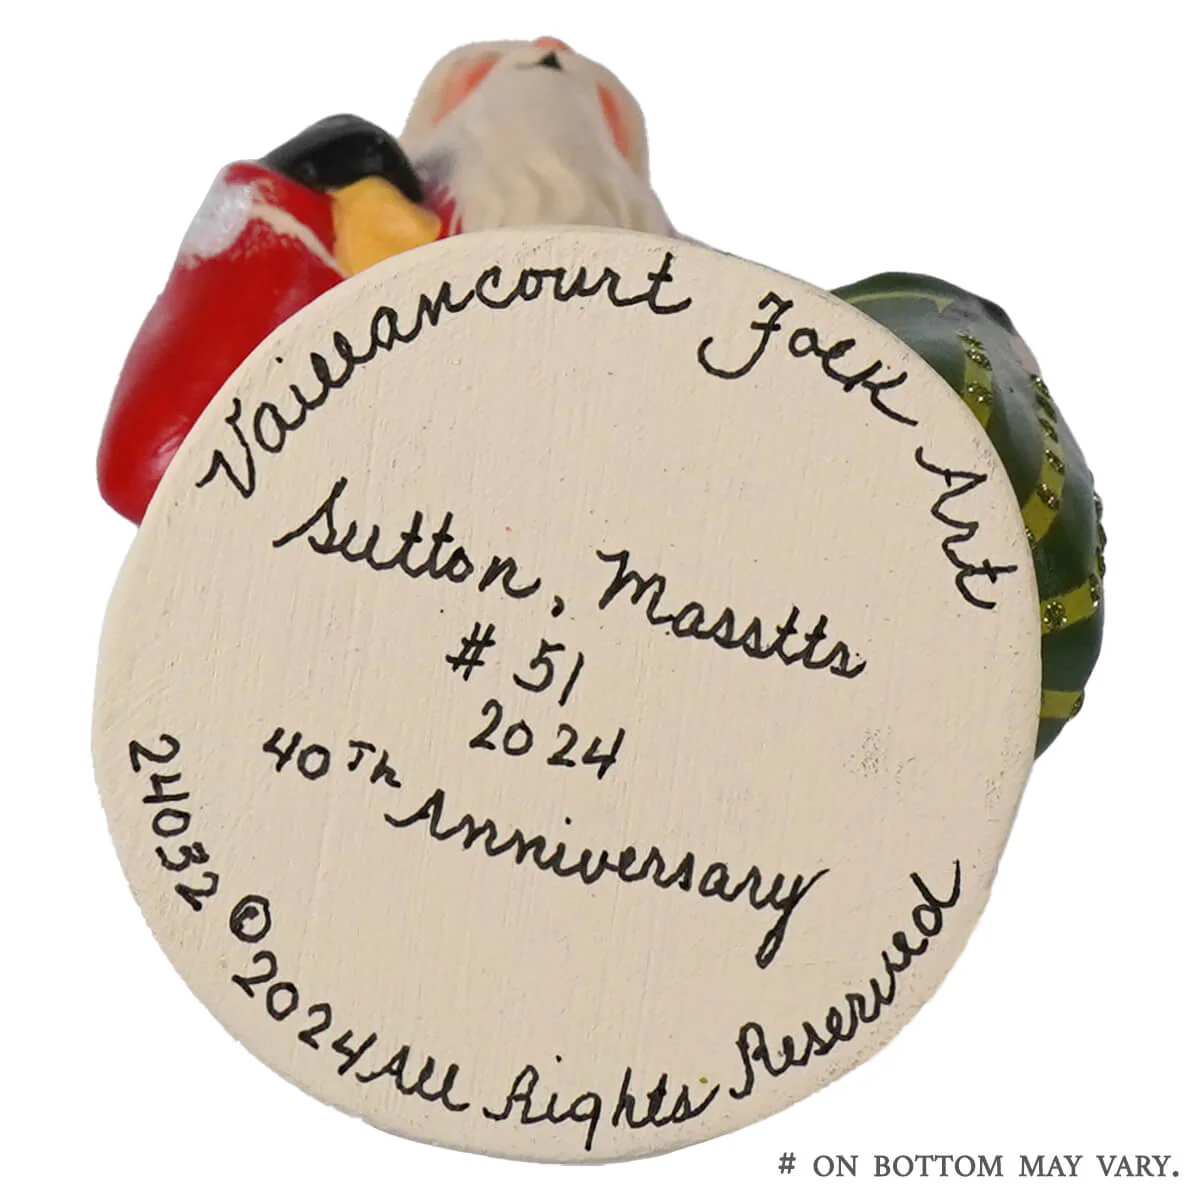 Vaillancourt Folk Art
Sutton, Masstts
# 51
2024
40Th Anniversary
24032 © 2024 All Rights Reserved
# ON BOTTOM MAY VARY.